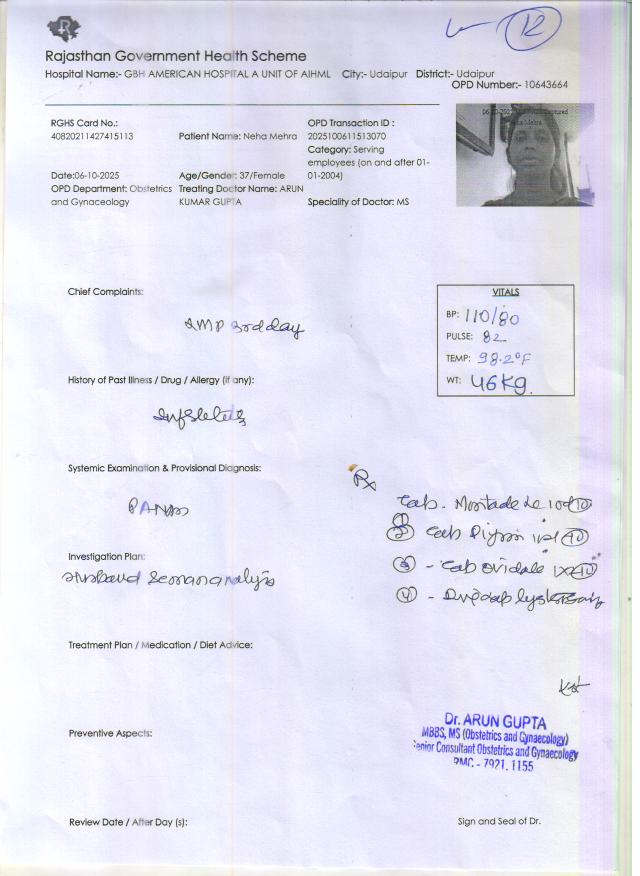 12
Rajasthan Government Health Scheme
Hospital Name:- GBH AMERICAN HOSPITAL A UNIT OF AIHML City:- Udaipur District:- Udaipur
OPD Number:- 10643664
RGHS Card No.:
40820211427415113
Patient Name: Neha Mehra
OPD Transaction ID :
2025100611513070
Category: Serving
employees (on and after 01-
01-2004)
Date:06-10-2025
Age/Gender: 37/Female
OPD Department: Obstetrics
and Gynaceology
Treating Doctor Name: ARUN
KUMAR GUPTA
Speciality of Doctor: MS
Chief Complaints:
LMP 3rd day
VITALS
BP: 110/80
PULSE: 82
TEMP: 98.2°F
WT: 46 Kg.
History of Past Illness / Drug / Allergy (if any):
Systemic Examination & Provisional Diagnosis:
Rx
Tab.
2 Tab
3 - Tab
4 -
Investigation Plan:
Husband Semen analysis
Treatment Plan / Medication / Diet Advice:
Preventive Aspects:
Dr. ARUN GUPTA
MBBS, MS (Obstetrics and Gynaecology)
Senior Consultant Obstetrics and Gynaecology
RMC - 7921, 1155
Review Date / After Day (s):
Sign and Seal of Dr.